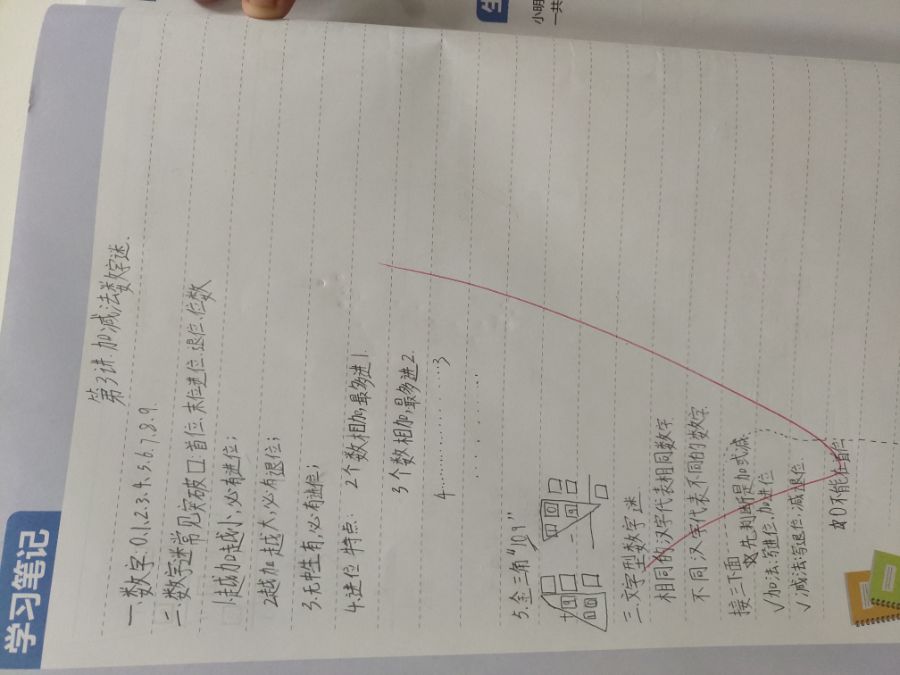 学习笔记
第3讲.加减法数字迷.
一.数字:0.1.2.3.4.5.6.7.8.9.
二.数字迷常见突破口:首位.末位进位.退位.位数
1.越加越小,必有进位;
2.越加越大,必有退位;
3.无中生有,必有进位;
4.进位特点: 2个数相加,最多进1.
3个数相加,最多进2.
4……………3
5.金三角"10 9"
三.文字型数字迷
相同的汉字代表相同数字
不同汉字代表不同的数字.
接三下面
☆先判断是加或减.
√加法:写进位,加进位
√减法:写退位,减退位
☆0不能在首位
小明
一共